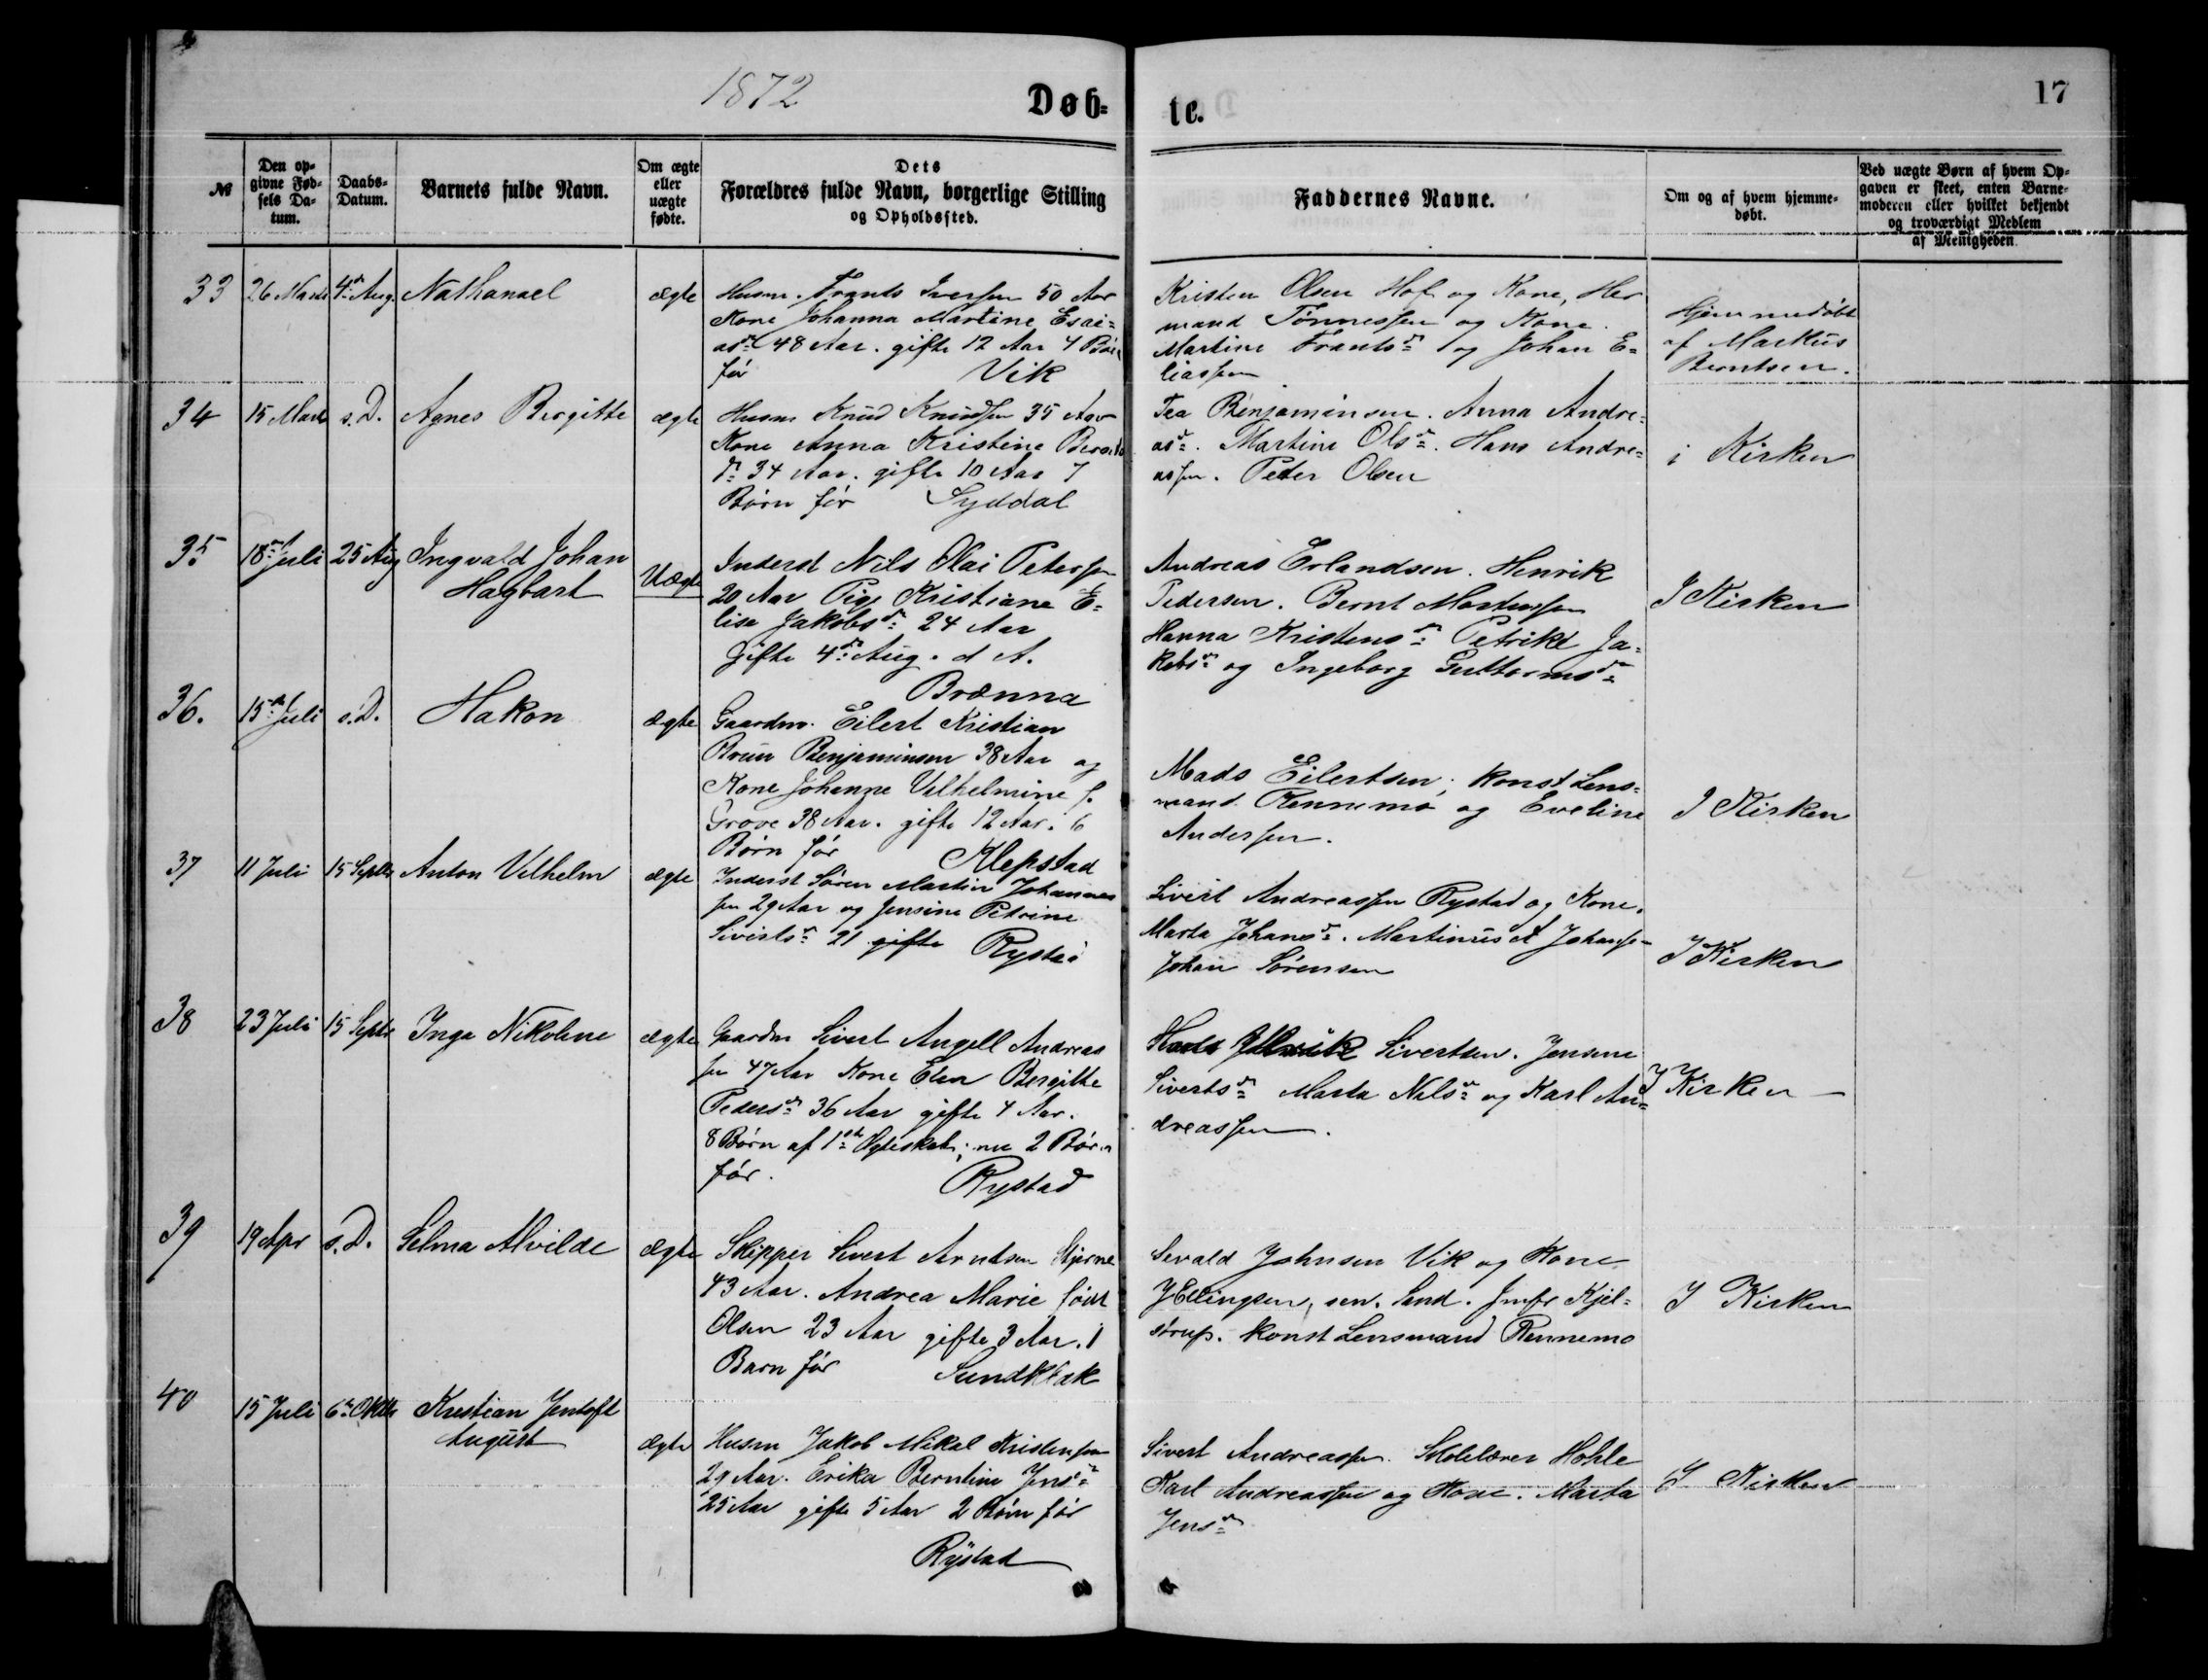 1872
Døb-
te.
17
№
Den op-
givne Fød-
sels Da-
tum.
Daabs-
Datum.
Barnets fulde Navn.
Om ægte
eller
uægte
fødte.
Dets
Forældres fulde Navn, borgerlige Stilling
og Opholdssted.
Faddernes Navne.
Om og af hvem hjemme-
døbt.
Ved uægte Børn af hvem Op-
gaven er skeet, enten Barne-
moderen eller hvilket bekjendt
og troværdigt Medlem
af Menigheden.
33
26 Marts
4de Aug.
Nathanael
ægte
Husm. Frants Iversen 50 Aar
Kone Johanna Martine Esai-
asdr 48 Aar. gifte 12 Aar 4 Børn
før Vik
Kristen Olsen Hol og Kone, Her
mand Tønnessen og Kone.
Martine Frantsdr og Johan E-
liassen
Hjemmedøbt
af Markus
Berntsen.
34
15 Marts
s.D.
Agnes Bergitte
ægte
Husm Knud Knudsen 35 Aar
Kone Anna Kristine Bernts
dr 34 Aar. gifte 10 Aar 7
Børn før Syddal
Tea Benjaminsen. Anna Andre-
asdr. Martine Olsdr. Hans Andre-
assen. Peter Olsen
i Kirken
35
18de Juli
25 Aug
Ingvald Johan
Hagbart
Uægte
Inderst Nils Olai Petersen
20 Aar Pige Kristiane E-
lise Jakobsdr 24 Aar
Gifte 4de Aug. d A.
Brænna
Andreas Erlandsen. Henrik
Pedersen. Bernt Mortensen
Hanna Kristensdr Petrikke Ja-
kobsdr og Ingeborg Guttormsdr
I Kirken
36.
15de Juli
s.D.
Hakon
ægte
Gaardm. Eilert Kristian
Bruun Benjaminsen 38 Aar og
Kone Johanne Vilhelmine f.
Grove 38 Aar. gifte 12 Aar. 6
Børn før Klepstad
Mads Eilertsen; konst Lens-
mand Rennemo og Eveline
Andersen.
I Kirken
37
11 Juli
15 Septbr
Anton Vilhelm
ægte
Inderst Søren Martin Johannes
sen 29 Aar og Jensine Petrine
Sivertsdr 21 gifte Rystad
Sivert Andreassen Rystad og Kone.
Marta Johansdr. Martinus A Johansen
Johan Sørensen
I Kirken
38
23 Juli
15 Septbr
Inga Nikoline
ægte
Gaardm Sivert Angell Andreas
sen 47 Aar Kone Elen Bergitte
Pedersdr 36 Aar gifte 4 Aar.
8 Børn af 1ste Ægteskab; nu 2 Børn
før. Rystad
Sivertsen. Jensine
Sivertsdr Marta Nilsdr og Karl An-
dreassen.
I Kirken
39
19 Apr
s.D.
Selma Alvilde
ægte
Skipper Sivert Arntsen Stjerne
43 Aar. Andrea Marie født
Olsen 23 Aar gifte 3 Aar. 1
Barn før Sundklak
Sevald Johnsen Vik og Kone
J Ellingsen, sen. Sand. Jmfr Kjel-
strup. konst Lensmand Rennemo
I Kirken
40
15 Juli
6te Oktbr
Kristian Jentoft
August
ægte
Husm Jakob Mikal Kristensen
29 Aar. Erika Berntine Jensdr
25 Aar gifte 5 Aar 2 Børn før
Rystad
Sivert Andreassen. Skolelærer Hohle
Karl Andreassen og Kone. Marta
Jensdr
I Kirken